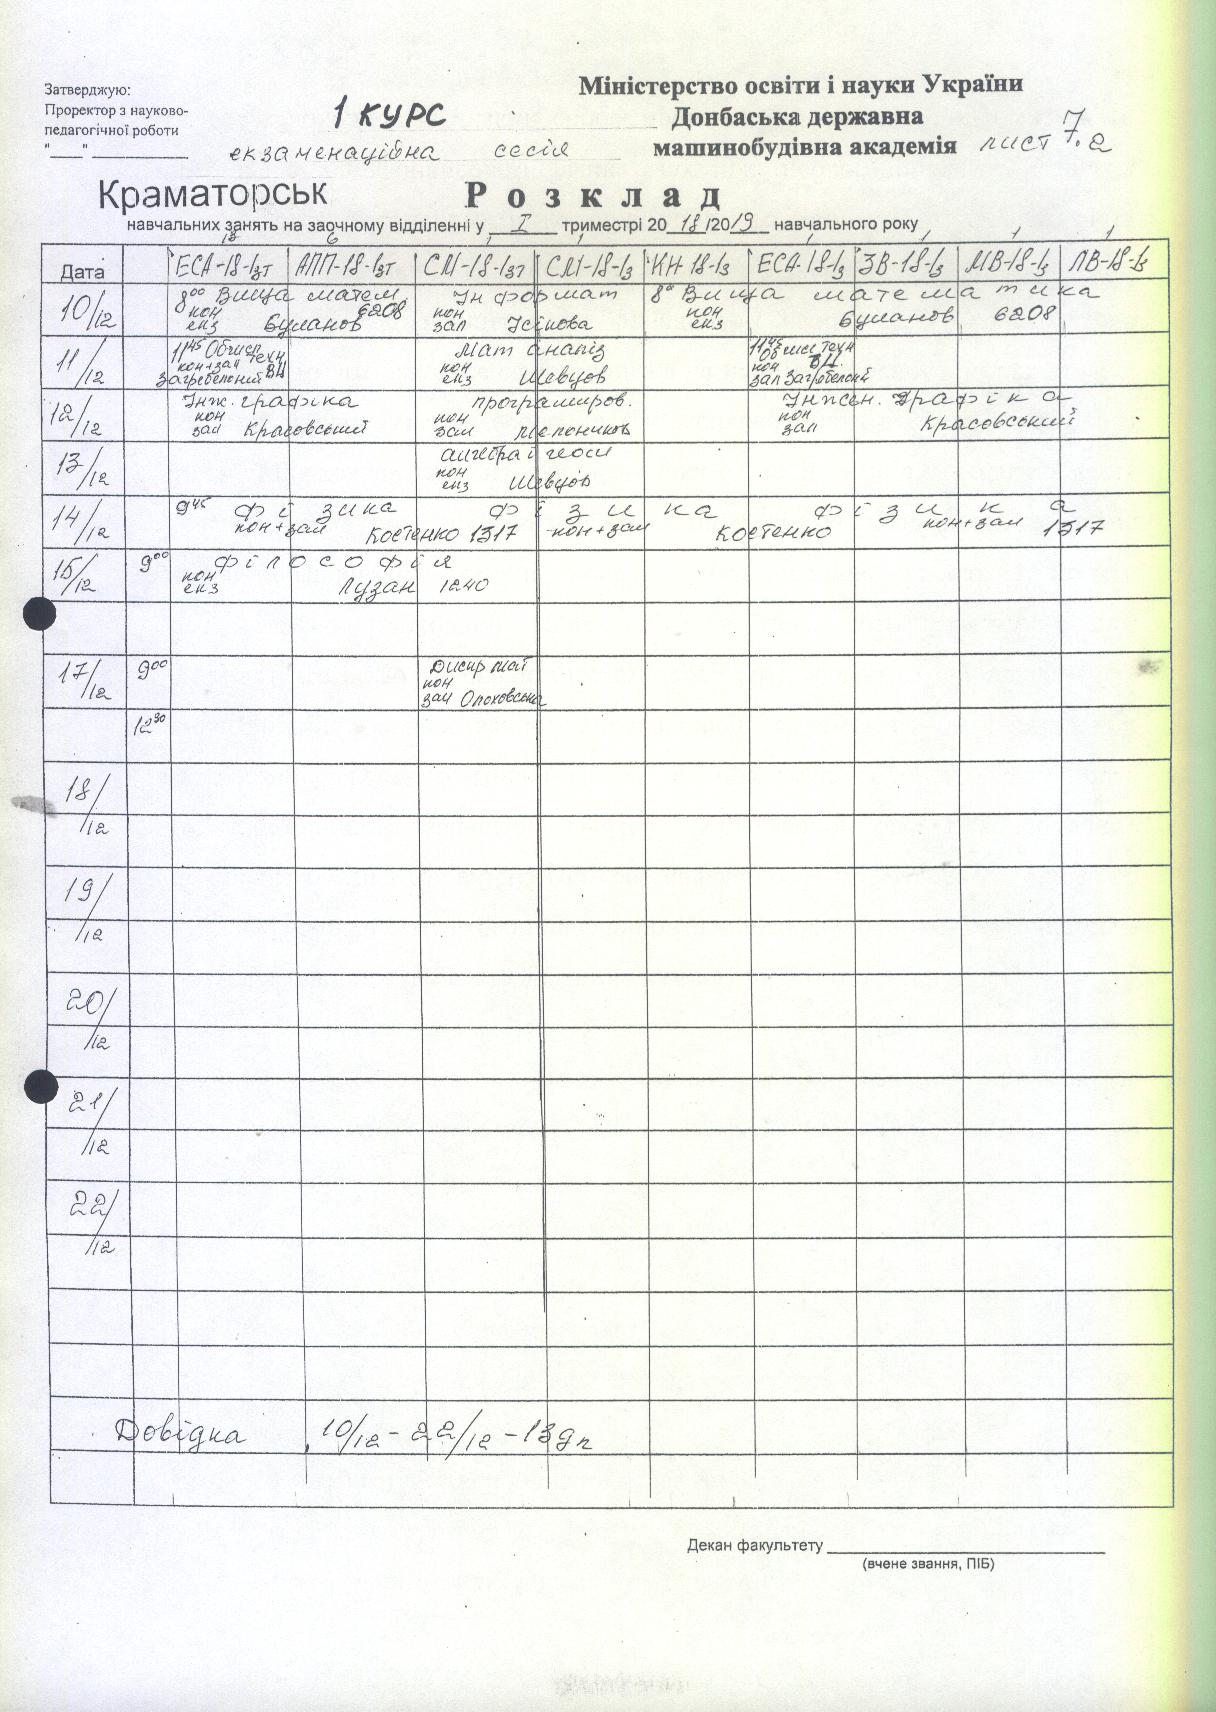 Затверджую:
Проректор з науково-
педагогічної роботи
"___" ____________
1 КУРС
екзаменаційна сесія
Міністерство освіти і науки України
Донбаська державна
машинобудівна академія
лист 7.2
Краматорськ
Розклад
навчальних занять на заочному відділенні у I триместрі 2018/2019 навчального року
13 6 1 1 1 1 1 1
Дата ЕСА-18-1зт АПП-18-1зт СМ-18-1зт СМ-18-1з КН-18-1з ЕСА-18-1з ЗВ-18-1з МВ-18-1з ЛВ-18-1з
10/12 8⁰⁰ Вища матем. Інформат 8⁰ Вища математика
кон 6208 кон кон
екз Буланов зал Ісікова екз Буланов 6208
11/12 11⁴⁵ Обчисл техн Мат аналіз 11⁴⁵ Обчисл техн
кон+зал ВЦ кон кон ВЦ
Загребельний екз Шевцов зал Загребельний
12/12 Інж. графіка програміров. Інжен. Графіка
кон кон кон
зал Красовський зал Мелеников зал Красовський
13/12 алгебра і геом
кон
екз Шевцов
14/12 9⁴⁵ фізика фізика фізика
кон+зал Костенко 1317 кон+зал Костенко кон+зал 1317
15/12 9⁰⁰ філософія
кон
екз Лузан 1240
17/12 9⁰⁰ Дискр мат
кон
зал
12³⁰
18/12
19/12
20/12
21/12
22/12
Довідка 10/12 - 22/12 - 13 дн
Декан факультету ____________
(вчене звання, ПІБ)